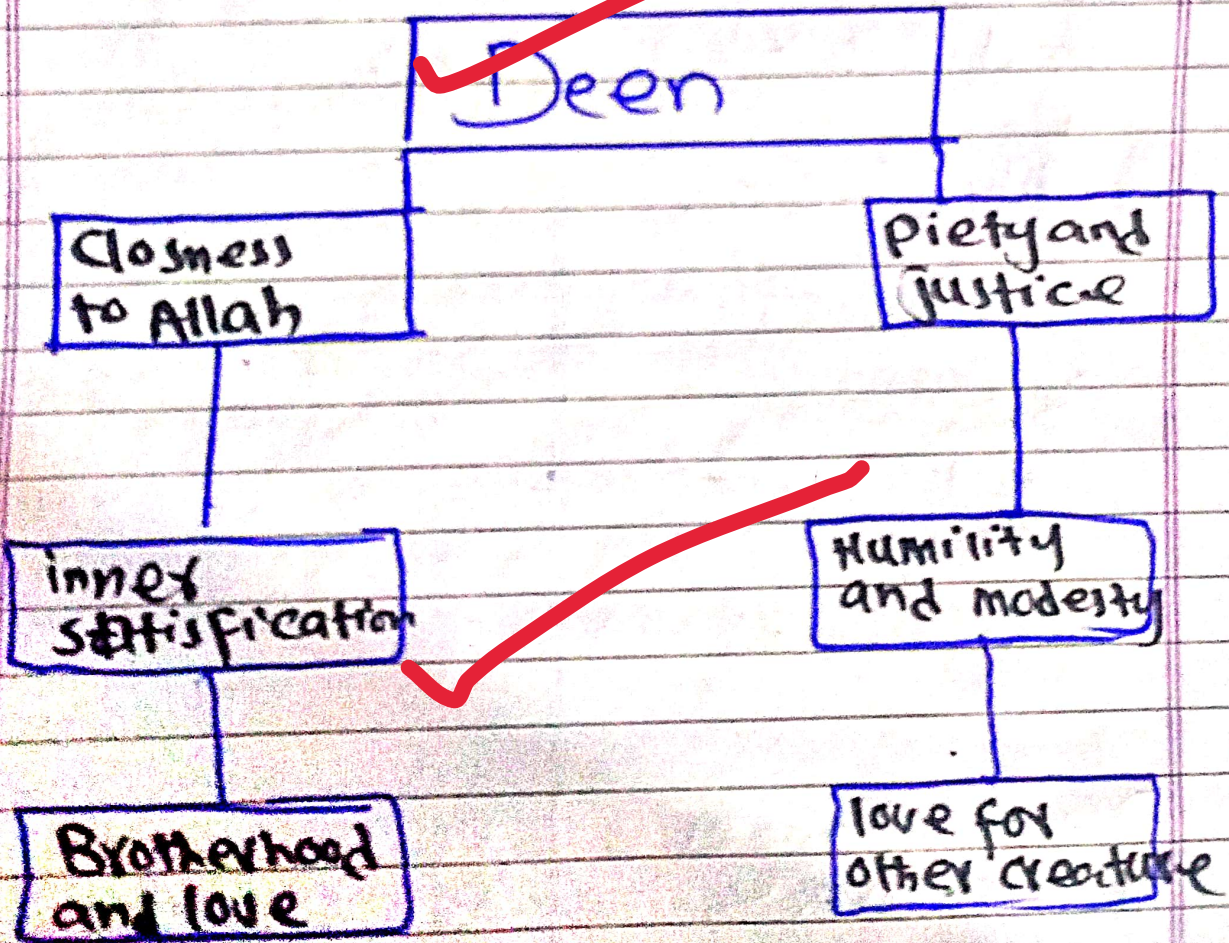 Deen
Closness
to Allah
piety and
justice
inner
satisfication
Humility
and modesty
Brotherhood
and love
love for
other creature